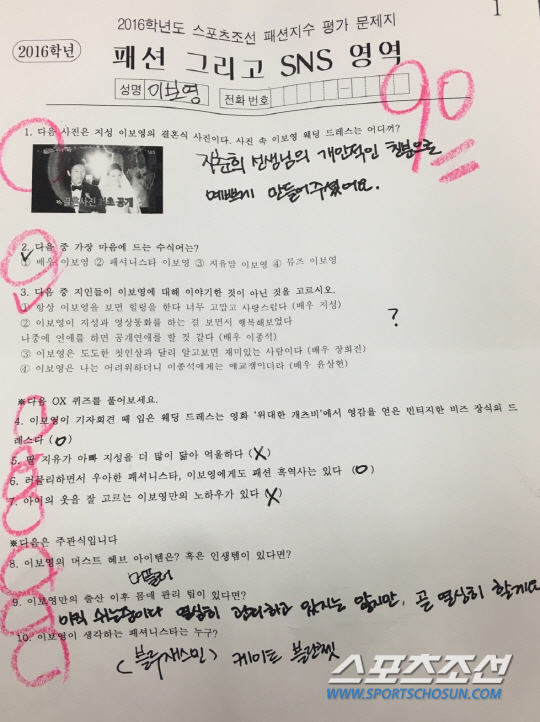 1
2016학년도 스포츠조선 패션지수 평가 문제지
2016학년
패션 그리고 SNS 영역
성명 이보영 전화 번호
90
1. 다음 사진은 지성 이보영의 결혼식 사진이다. 사진 속 이보영 웨딩 드레스는 어디꺼?
김윤희 선생님의 개인적인 친분으로
예쁘게 만들어주셨어요.
결혼사진 최초 공개
2. 다음 중 가장 마음에 드는 수식어는?
① 배우 이보영 ② 패셔니스타 이보영 ③ 지유맘 이보영 ④ 뮤즈 이보영
3. 다음 중 지인들이 이보영에 대해 이야기한 것이 아닌 것을 고르시오.
① 항상 이보영을 보면 힐링을 한다 너무 고맙고 사랑스럽다 (배우 지성)
② 이보영이 지성과 영상통화를 하는 걸 보면서 행복해보였다
나중에 연애를 하면 공개연애를 할 것 같다 (배우 이종석)
?
③ 이보영은 도도한 첫인상과 달리 알고보면 재미있는 사람이다 (배우 장희진)
④ 이보영은 나는 어려워하더니 이종석에게는 애교쟁이더라 (배우 윤상현)
※다음 OX 퀴즈를 풀어보세요.
4. 이보영이 기자회견 때 입은 웨딩 드레스는 영화 '위대한 개츠비'에서 영감을 얻은 빈티지한 비즈 장식의 드
레스다 (O)
5. 딸 지유가 아빠 지성을 더 많이 닮아 억울하다 (X)
6. 러블리하면서 우아한 패셔니스타, 이보영에게도 패션 흑역사는 있다 (O)
7. 아이의 옷을 잘 고르는 이보영만의 노하우가 있다 (X)
※다음은 주관식입니다
8. 이보영의 머스트 헤브 아이템은? 혹은 인생템이 있다면?
머플러
9. 이보영만의 출산 이후 몸매 관리 팁이 있다면?
아직 쉬는중이다 열심히 관리하고 있지는 않지만, 곧 열심히 할게요
10. 이보영이 생각하는 패셔니스타는 누구?
(블루재스민) 케이트 블란쳇
스포츠조선
WWW.SPORTSCHOSUN.COM